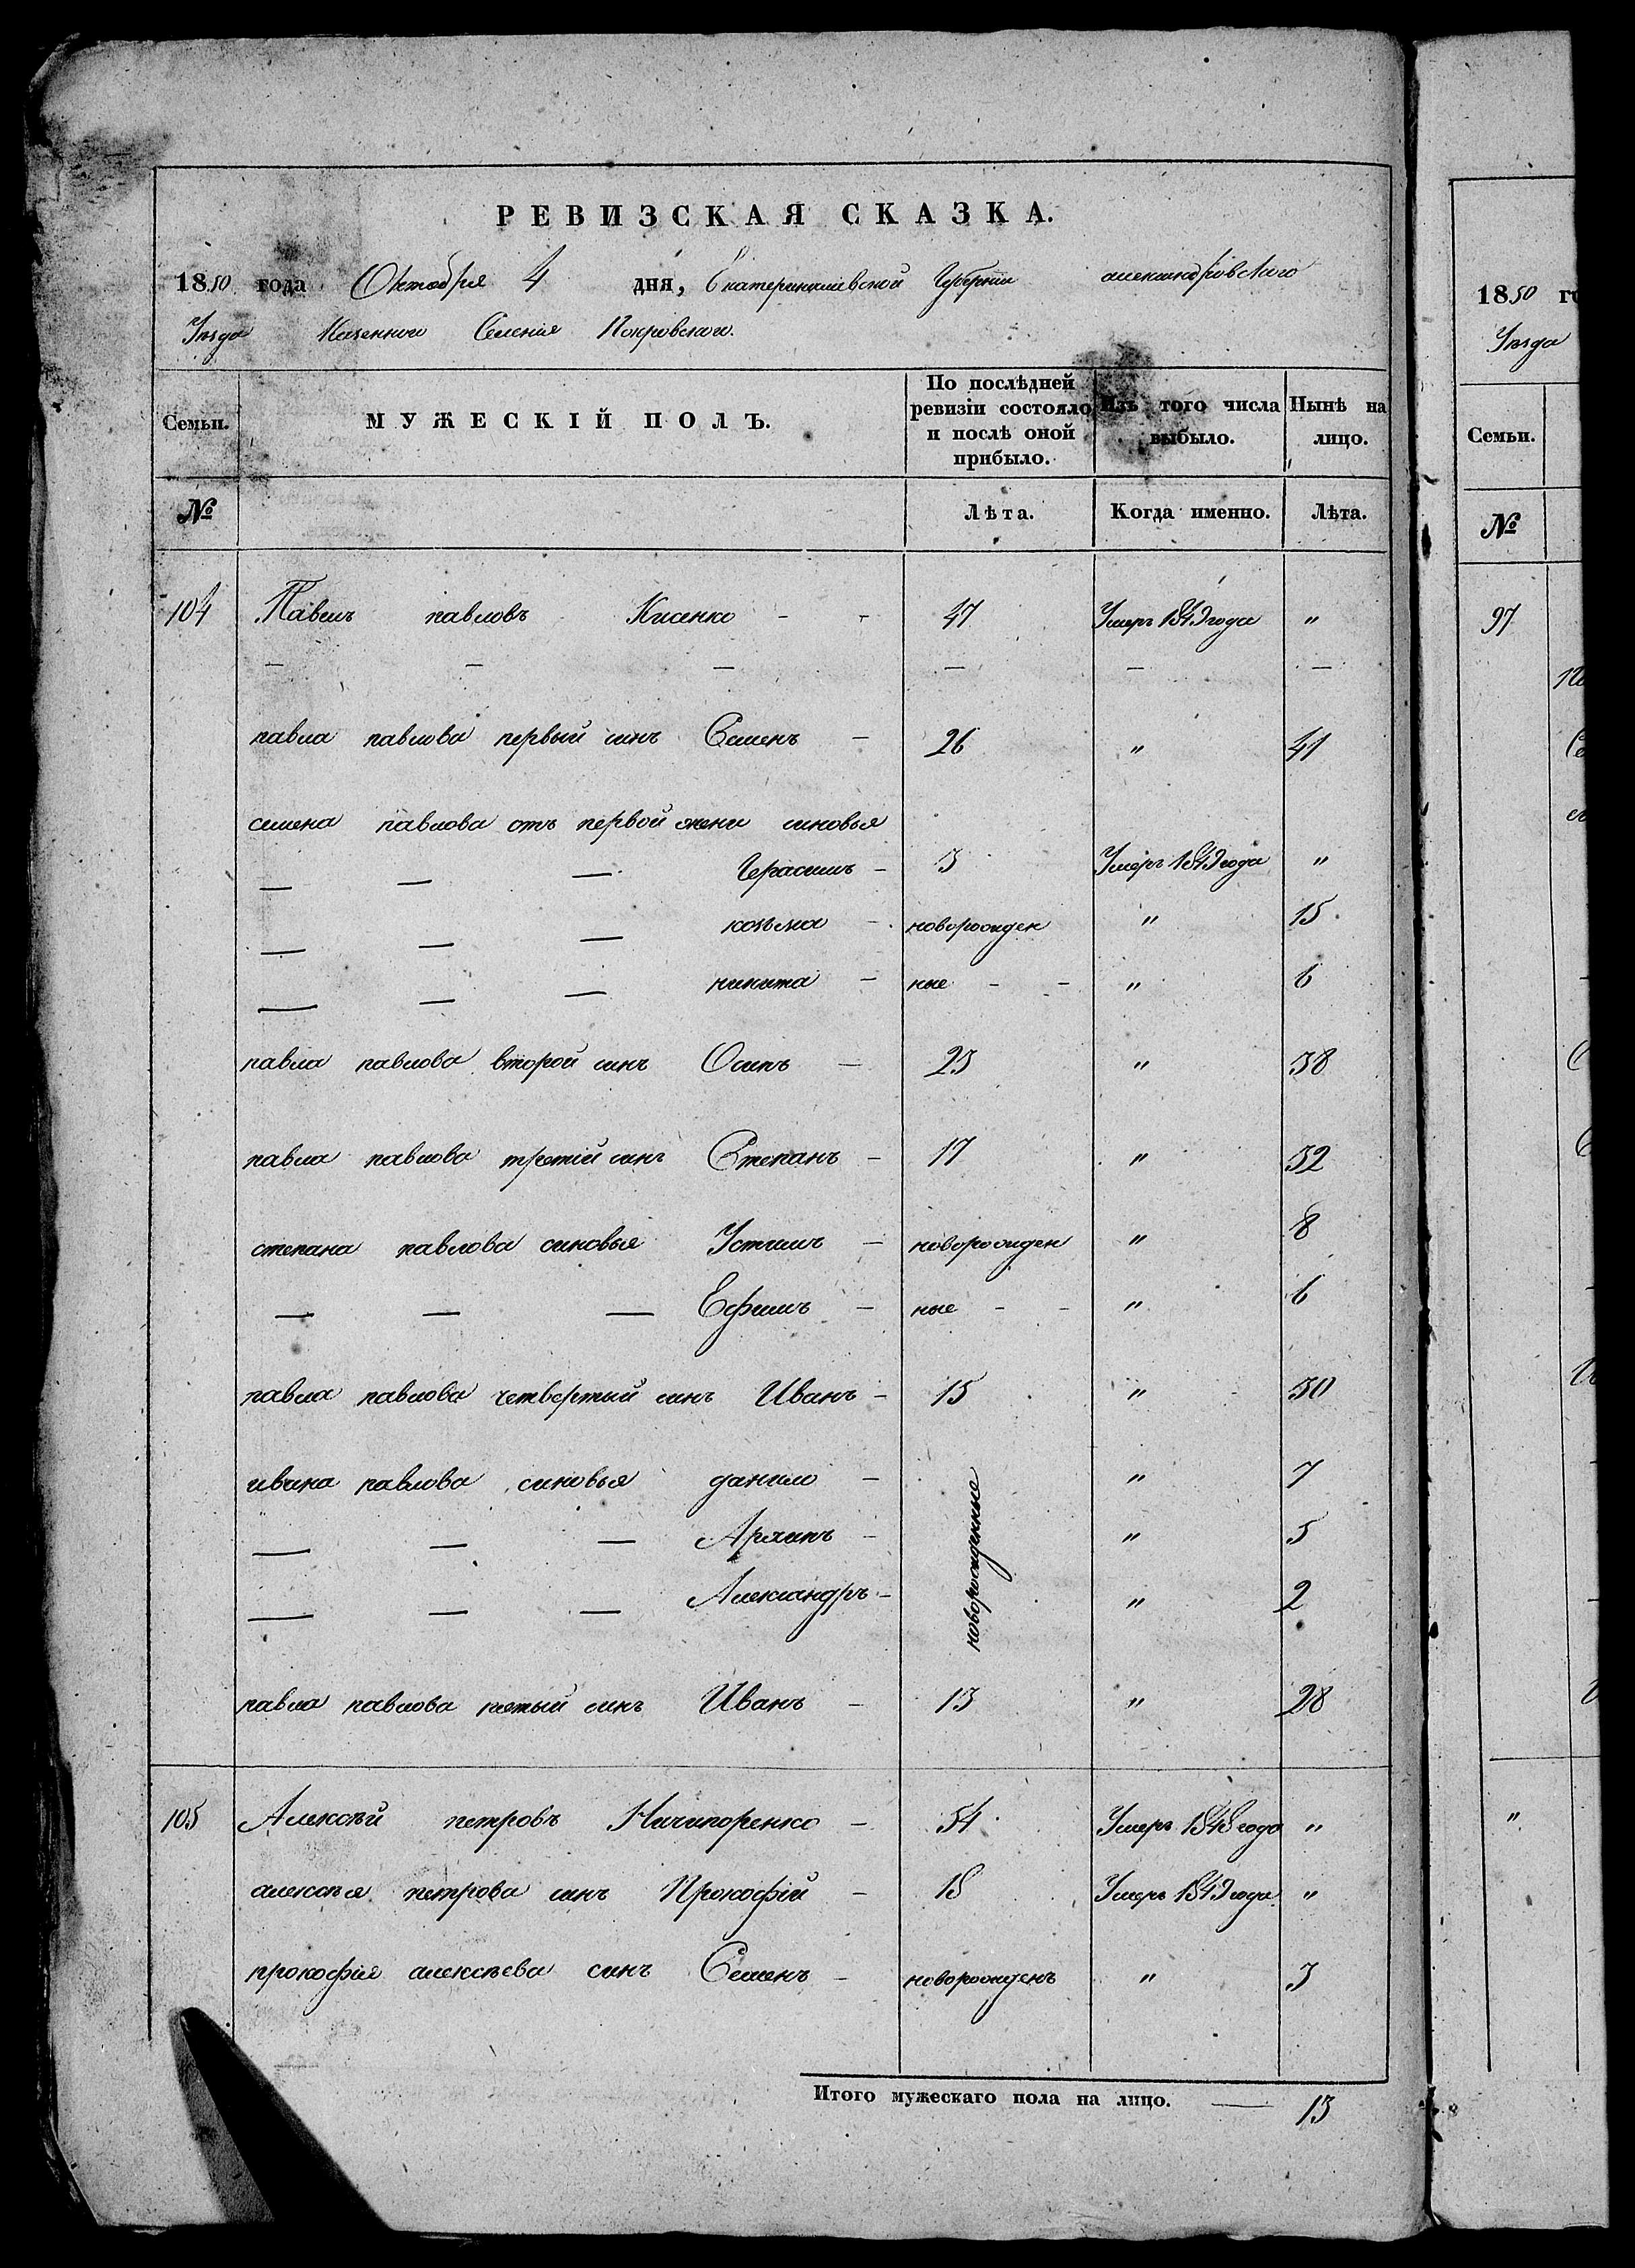 РЕВИЗСКАЯ СКАЗКА.
1850 года Октября 4 дня, Екатеринославской Губернии александровскаго
Уезда Казенного Селения Покровского.
Семьи.
МУЖЕСКІЙ ПОЛЪ.
По послѣдней ревизіи состояло и послѣ оной прибыло.
Изъ того числа выбыло.
Нынѣ на лицо.
№
Лѣта.
Когда именно.
Лѣта.
104 Павелъ павловъ Кисенко - - 47 Умеръ 1849 года "
— — — — — —
павла павлова первый синъ Семенъ — 26 " 41
семена павлова отъ первой жени синовья
— — — Герасимъ - 3 Умеръ 1849 года "
— — — козьма - новорожден " 15
— — — никита - ные - - " 6
павла павлова второй синъ Осипъ — 23 " 38
павла павлова третій синъ Степанъ - 17 " 32
степана павлова синовья Устимъ - новорожден " 8
— — — Ефимъ - ные - - " 6
павла павлова четвертый синъ Иванъ - 15 " 30
ивана павлова синовья данило - новорожденные " 7
— — — Архипъ - " 5
— — — Александръ - " 2
павла павлова пятый синъ Иванъ - 13 " 28
105 Алексѣй петровъ Ничипоренко - 54 Умеръ 1848 года "
алексѣя петрова синъ Прокофій - 18 Умеръ 1849 года "
прокофія алексѣева синъ Семенъ - новорожденъ " 3
Итого мужескаго пола на лицо. — 13
1850 го
Уезда
Семьи.
№
97
"